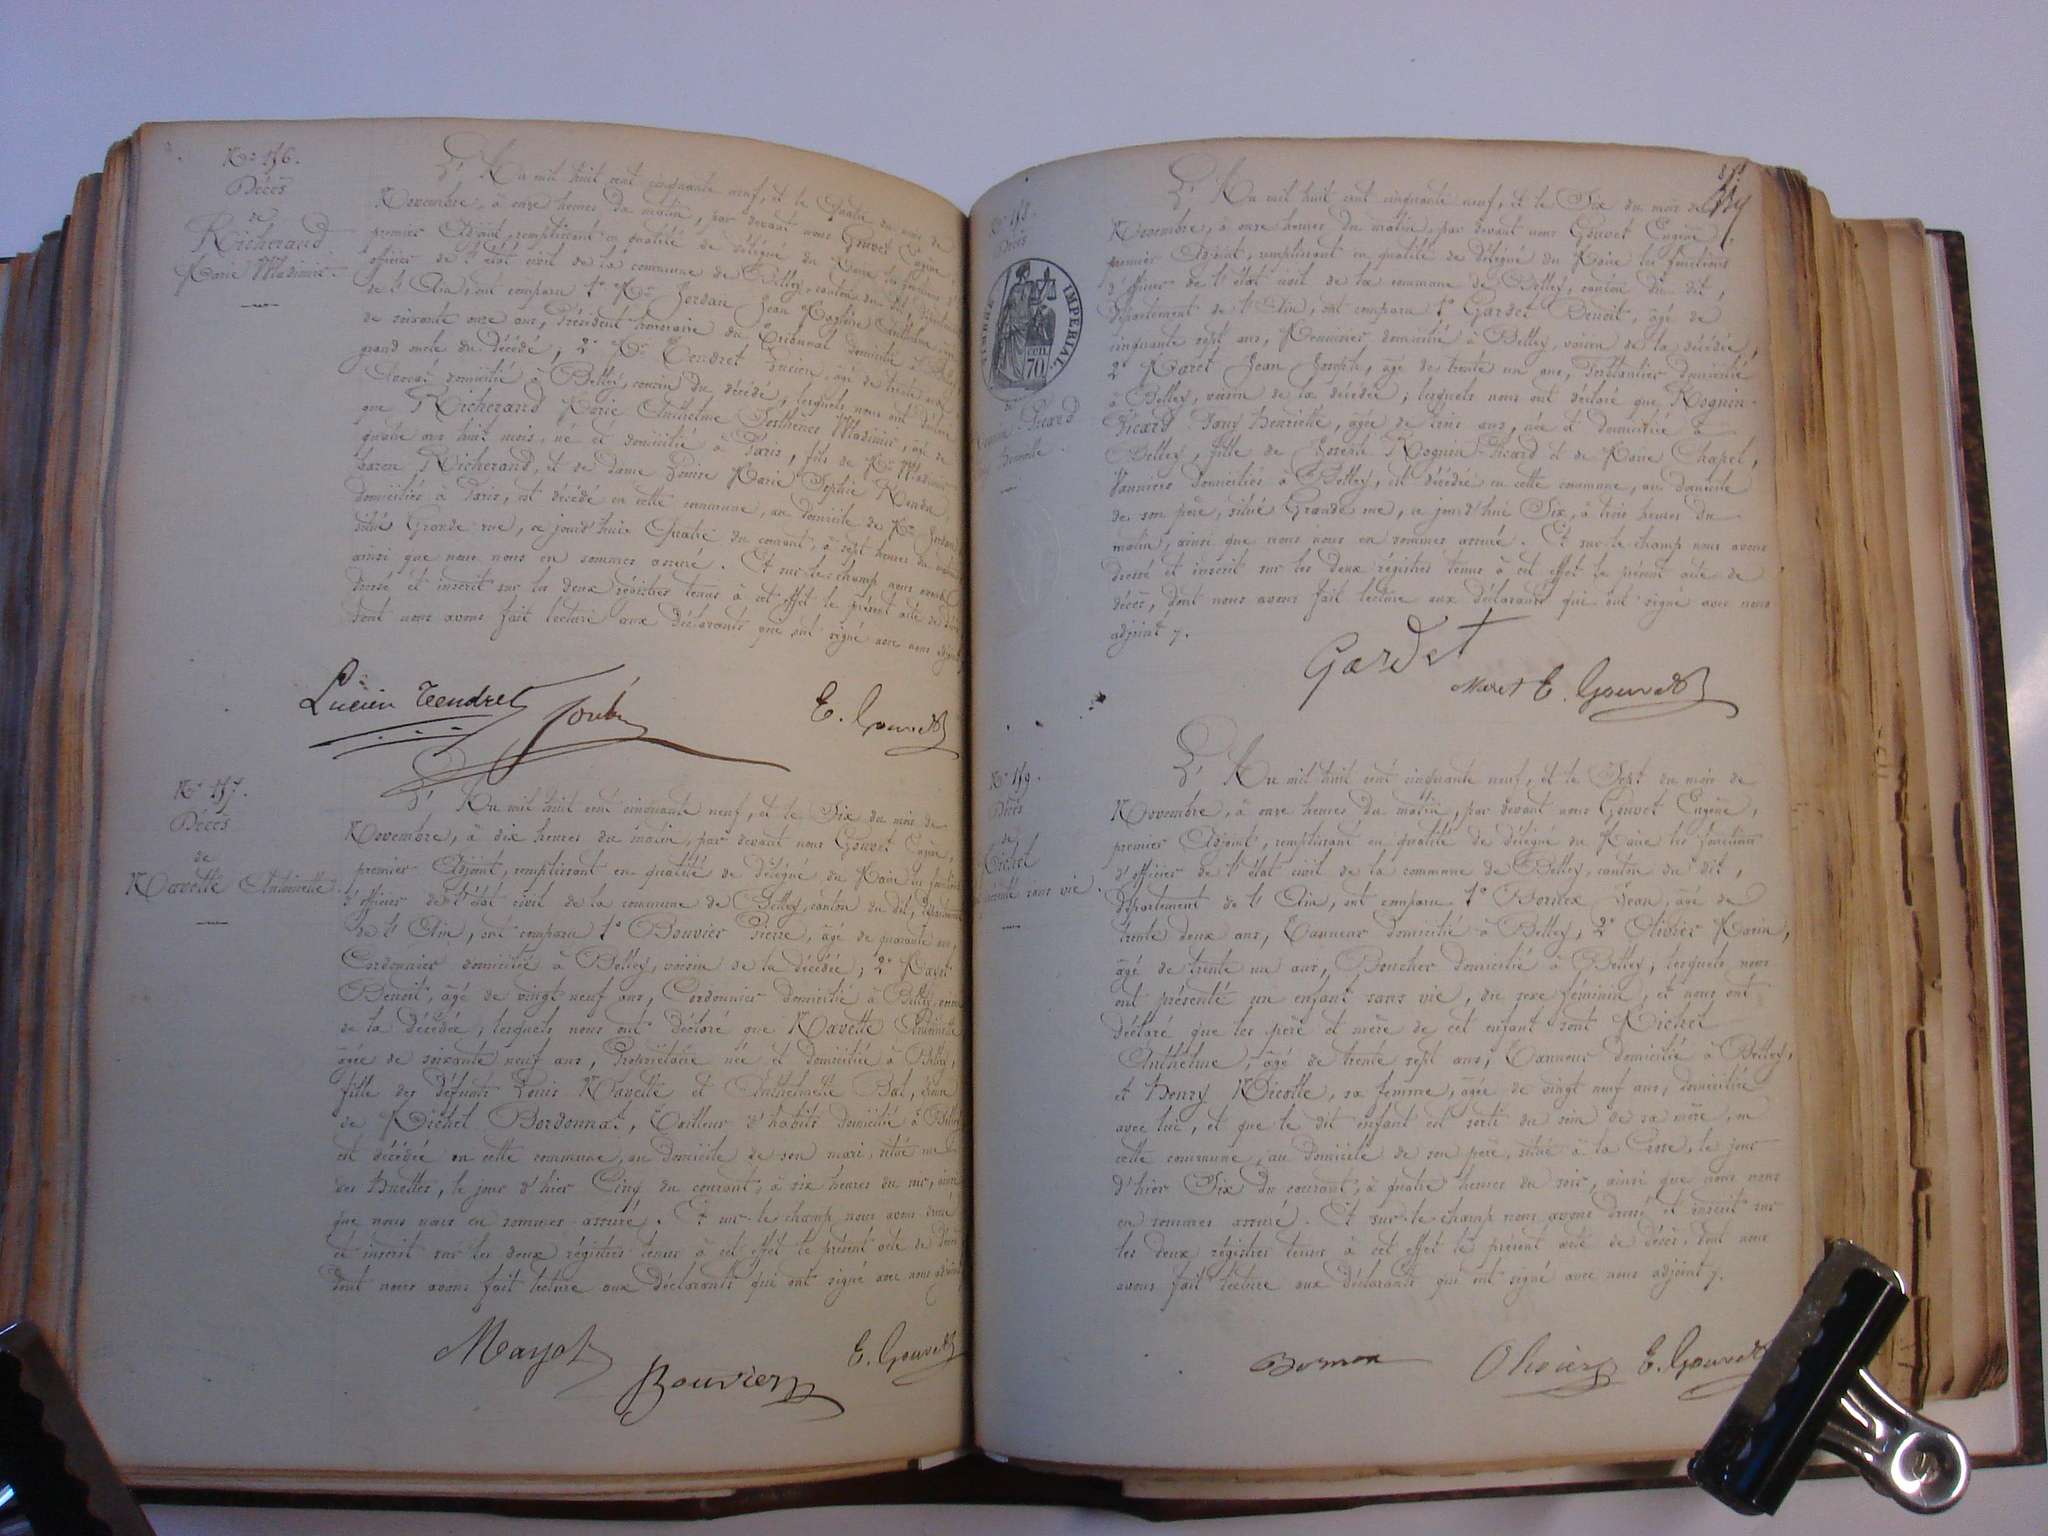 No 156.
Décès
de
Richerand
Marie Wladimir.
L'An mil huit cent cinquante neuf, et le Quatre du mois de
Novembre, à onze heures du matin, par devant nous Gouvet Eugène,
premier Adjoint, remplissant en qualité de délégué du Maire les fonctions
d'officier de l'état civil de la commune de Belley, canton du dit, département
de l'Ain, ont comparu 1° Mr Jordan Jean Anthelme,
de soixante onze ans, Président honoraire du Tribunal domicilié à Belley
grand oncle du décédé; 2° Mr Tendret Lucien, âgé de trente
Avocat domicilié à Belley, cousin du décédé; lesquels nous ont déclaré
que Richerand Marie Anthelme Sosthènes Wladimir, âgé de
quatre ans huit mois, né et domicilié à Paris, fils de Mr Wladimir
baron Richerand, et de dame Louise Marie Sophie
domiciliés à Paris, est décédé en cette commune, au domicile de Mr Jordan
situé Grande rue, ce jourd'hui Quatre du courant, à sept heures du matin
ainsi que nous nous en sommes assuré. Et sur-le-champ nous avons
dressé et inscrit sur les deux régistres tenus à cet effet le présent acte de décès
dont nous avons fait lecture aux déclarants qui ont signé avec nous adjoint
Lucien Tendret
E. Gouvet
No 157.
Décès
de
Navette Antoinette
L'An mil huit cent cinquante neuf, et le Six du mois de
Novembre, à dix heures du matin, par devant nous Gouvet Eugène,
premier Adjoint, remplissant en qualité de délégué du Maire les fonctions
d'officier de l'état civil de la commune de Belley, canton du dit, département
de l'Ain, ont comparu 1° Bouvier Pierre, âgé de quarante ans,
Cordonnier domicilié à Belley, voisin de la décédée; 2° Mayot
Benoit, âgé de vingt neuf ans, Cordonnier domicilié à Belley, voisin
de la décédée; lesquels nous ont déclaré que Navette Antoinette
âgée de soixante neuf ans, Propriétaire née et domiciliée à Belley,
fille des défunts Louis Navette et Anthelmette Bal,
de Michel Bordonnat, Tailleur d'habits domicilié à Belley
est décédée en cette commune, au domicile de son mari, situé rue
des Huettes, le jour d'hier Cinq du courant, à six heures du soir, ainsi
que nous nous en sommes assuré. Et sur-le-champ nous avons dressé
et inscrit sur les deux régistres tenus à cet effet le présent acte de décès
dont nous avons fait lecture aux déclarants qui ont signé avec nous adjoint
Mayot
Bouvier
E. Gouvet
No 158.
Décès
TIMBRE IMPERIAL
70
de
Picard
Henriette.
L'An mil huit cent cinquante neuf, et le Six du mois de
Novembre, à onze heures du matin, par devant nous Gouvet Eugène,
premier Adjoint, remplissant en qualité de délégué du Maire les fonctions
d'officier de l'état civil de la commune de Belley, canton du dit,
département de l'Ain, ont comparu 1° Gardet Benoit, âgé de
cinquante sept ans, Menuisier domicilié à Belley, voisin de la décédée,
2° Maret Jean Joseph, âgé de trente un ans, Ferblantier domicilié
à Belley, voisin de la décédée; lesquels nous ont déclaré que Rognin-
Picard Fany Henriette, âgée de trois ans, née et domiciliée à
Belley, fille de Joseph Rognin-Picard et de Marie Chapel,
Vanniers domiciliés à Belley, est décédée en cette commune, au domicile
de son père, situé Grande rue, ce jourd'hui Six, à trois heures du
matin, ainsi que nous nous en sommes assuré. Et sur-le-champ nous avons
dressé et inscrit sur les deux régistres tenus à cet effet le présent acte de
décès, dont nous avons fait lecture aux déclarants qui ont signé avec nous
adjoint.
Gardet
Maret E. Gouvet
No 159.
Décès
de
Michel
présenté sans vie.
L'An mil huit cent cinquante neuf, et le Sept du mois de
Novembre, à onze heures du matin, par devant nous Gouvet Eugène,
premier Adjoint, remplissant en qualité de délégué du Maire les fonctions
d'officier de l'état civil de la commune de Belley, canton du dit,
département de l'Ain, ont comparu 1° Bornex Jean, âgé de
trente deux ans, Tanneur domicilié à Belley, 2° Olivier Marin,
âgé de trente un ans, Boucher domicilié à Belley, lesquels nous
ont présenté un enfant sans vie, du sexe féminin, et nous ont
déclaré que les père et mère de cet enfant sont Michel
Anthelme, âgé de trente sept ans, Tanneur domicilié à Belley,
et Henry Nicolle, sa femme, âgée de vingt neuf ans, domiciliée
avec lui, et que le dit enfant est sorti du sein de sa mère, en
cette commune, au domicile de son père, situé à la Croze, le jour
d'hier Six du courant, à quatre heures du soir, ainsi que nous nous
en sommes assuré. Et sur-le-champ nous avons dressé et inscrit sur
les deux régistres tenus à cet effet le présent acte de décès, dont nous
avons fait lecture aux déclarants qui ont signé avec nous adjoint.
Bornex
Olivier E. Gouvet